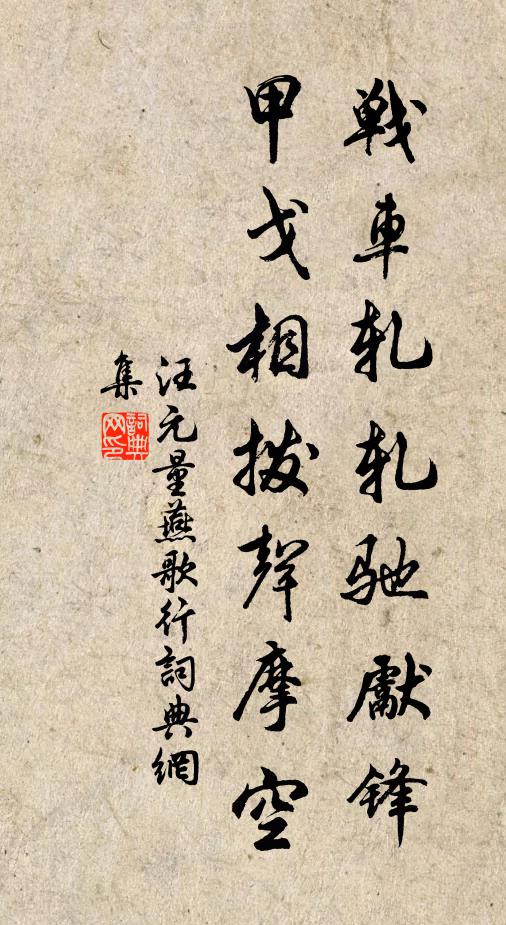 戦車軋軋馳獻鋒
甲戈相撥聲摩空
汪元量燕歌行詞典網
集
詞典網印